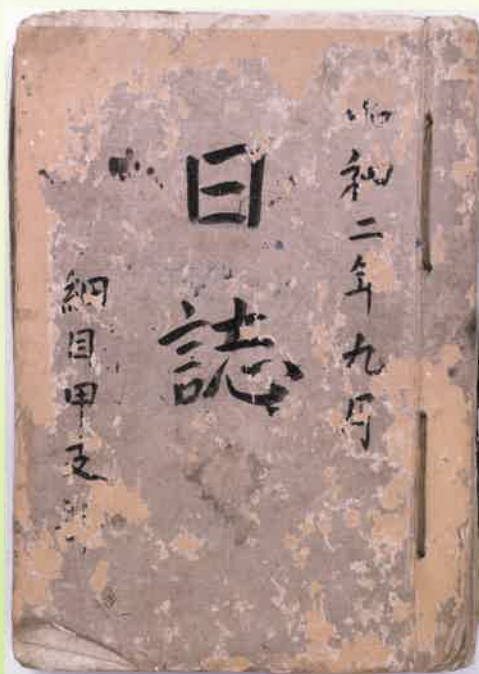 昭和二年九月
日誌
網目甲支